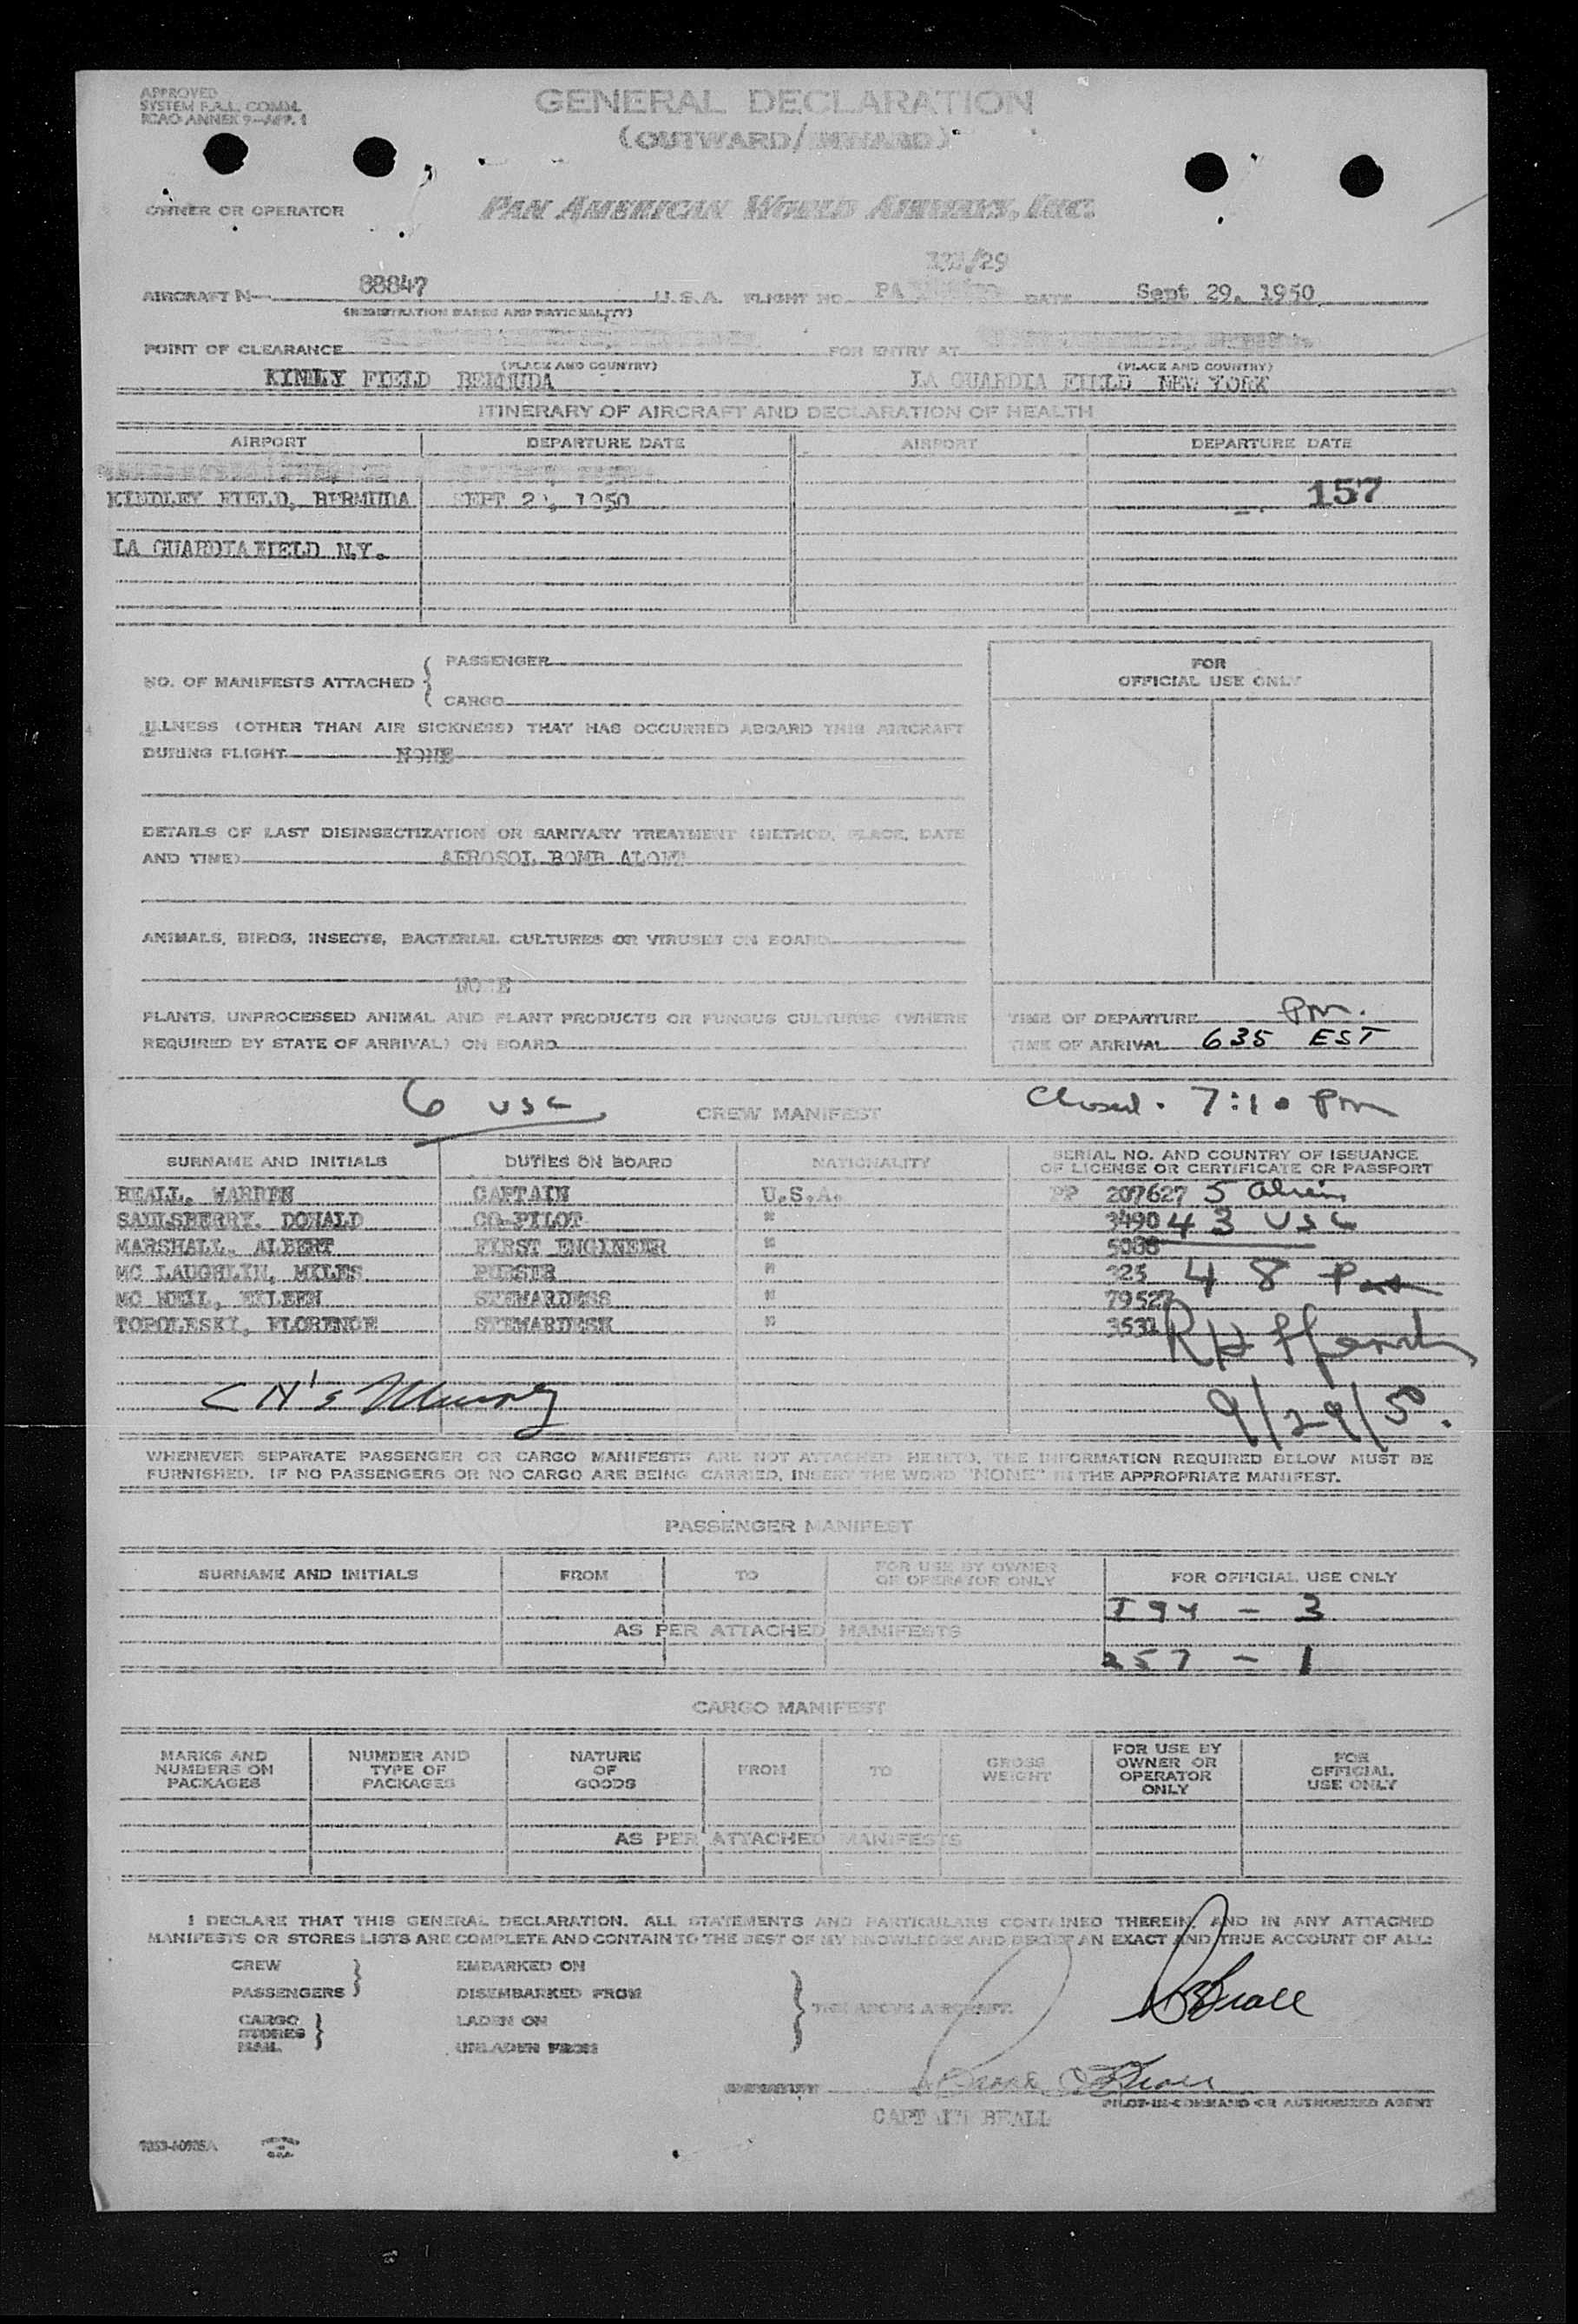 APPROVED
SYSTEM F.A.L. COMM.
ICAO ANNEX 9-APP. 1
GENERAL DECLARATION
(OUTWARD/INWARD)
OWNER OR OPERATOR PAN AMERICAN WORLD AIRWAYS, INC.
/29
AIRCRAFT N- 88847 U.S.A. FLIGHT NO. PA DATE Sept 29, 1950
(REGISTRATION MARKS AND NATIONALITY)
POINT OF CLEARANCE FOR ENTRY AT
(PLACE AND COUNTRY) (PLACE AND COUNTRY)
KINDLY FIELD BERMUDA LA GUARDIA FIELD NEW YORK
ITINERARY OF AIRCRAFT AND DECLARATION OF HEALTH
AIRPORT DEPARTURE DATE AIRPORT DEPARTURE DATE
KINDLEY FIELD, BERMUDA SEPT 29, 1950 157
LA GUARDIA FIELD N.Y.
NO. OF MANIFESTS ATTACHED { PASSENGER
CARGO
FOR
OFFICIAL USE ONLY
ILLNESS (OTHER THAN AIR SICKNESS) THAT HAS OCCURRED ABOARD THIS AIRCRAFT
DURING FLIGHT NONE
DETAILS OF LAST DISINSECTIZATION OR SANITARY TREATMENT (METHOD, PLACE, DATE
AND TIME) AEROSOL BOMB ALOFT
ANIMALS, BIRDS, INSECTS, BACTERIAL CULTURES OR VIRUSES ON BOARD
NONE
PLANTS, UNPROCESSED ANIMAL AND PLANT PRODUCTS OR FUNGUS CULTURES (WHERE
REQUIRED BY STATE OF ARRIVAL) ON BOARD
TIME OF DEPARTURE Pm.
TIME OF ARRIVAL 635 EST
6 USC CREW MANIFEST Closed. 7:10 Pm
SURNAME AND INITIALS DUTIES ON BOARD NATIONALITY SERIAL NO. AND COUNTRY OF ISSUANCE
OF LICENSE OR CERTIFICATE OR PASSPORT
BEALL, WARREN CAPTAIN U.S.A. PP 207627 5 Aliens
SAULSBERRY, DONALD CO-PILOT " 3490 43 USC
MARSHALL, ALBERT FIRST ENGINEER " 5088
MC LAUGHLIN, MILES PURSER " 325 48 Pass
MC NEIL, EILEEN STEWARDESS " 79527
TOPOLESKY, FLORENCE STEWARDESS " 3531
9/29/50.
WHENEVER SEPARATE PASSENGER OR CARGO MANIFESTS ARE NOT ATTACHED HERETO, THE INFORMATION REQUIRED BELOW MUST BE
FURNISHED. IF NO PASSENGERS OR NO CARGO ARE BEING CARRIED, INSERT THE WORD "NONE" IN THE APPROPRIATE MANIFEST.
PASSENGER MANIFEST
SURNAME AND INITIALS FROM TO FOR USE BY OWNER
OR OPERATOR ONLY FOR OFFICIAL USE ONLY
I94 - 3
AS PER ATTACHED MANIFESTS
257 - 1
CARGO MANIFEST
MARKS AND
NUMBERS ON
PACKAGES NUMBER AND
TYPE OF
PACKAGES NATURE
OF
GOODS FROM TO GROSS
WEIGHT FOR USE BY
OWNER OR
OPERATOR
ONLY FOR
OFFICIAL
USE ONLY
AS PER ATTACHED MANIFESTS
I DECLARE THAT THIS GENERAL DECLARATION, ALL STATEMENTS AND PARTICULARS CONTAINED THEREIN, AND IN ANY ATTACHED
MANIFESTS OR STORES LISTS ARE COMPLETE AND CONTAIN TO THE BEST OF MY KNOWLEDGE AND BELIEF AN EXACT AND TRUE ACCOUNT OF ALL:
CREW EMBARKED ON
PASSENGERS DISEMBARKED FROM
CARGO LADEN ON THE ABOVE AIRCRAFT.
STORES
MAIL UNLADEN FROM
SIGNATURE
PILOT-IN-COMMAND OR AUTHORIZED AGENT
CAPTAIN BEALL